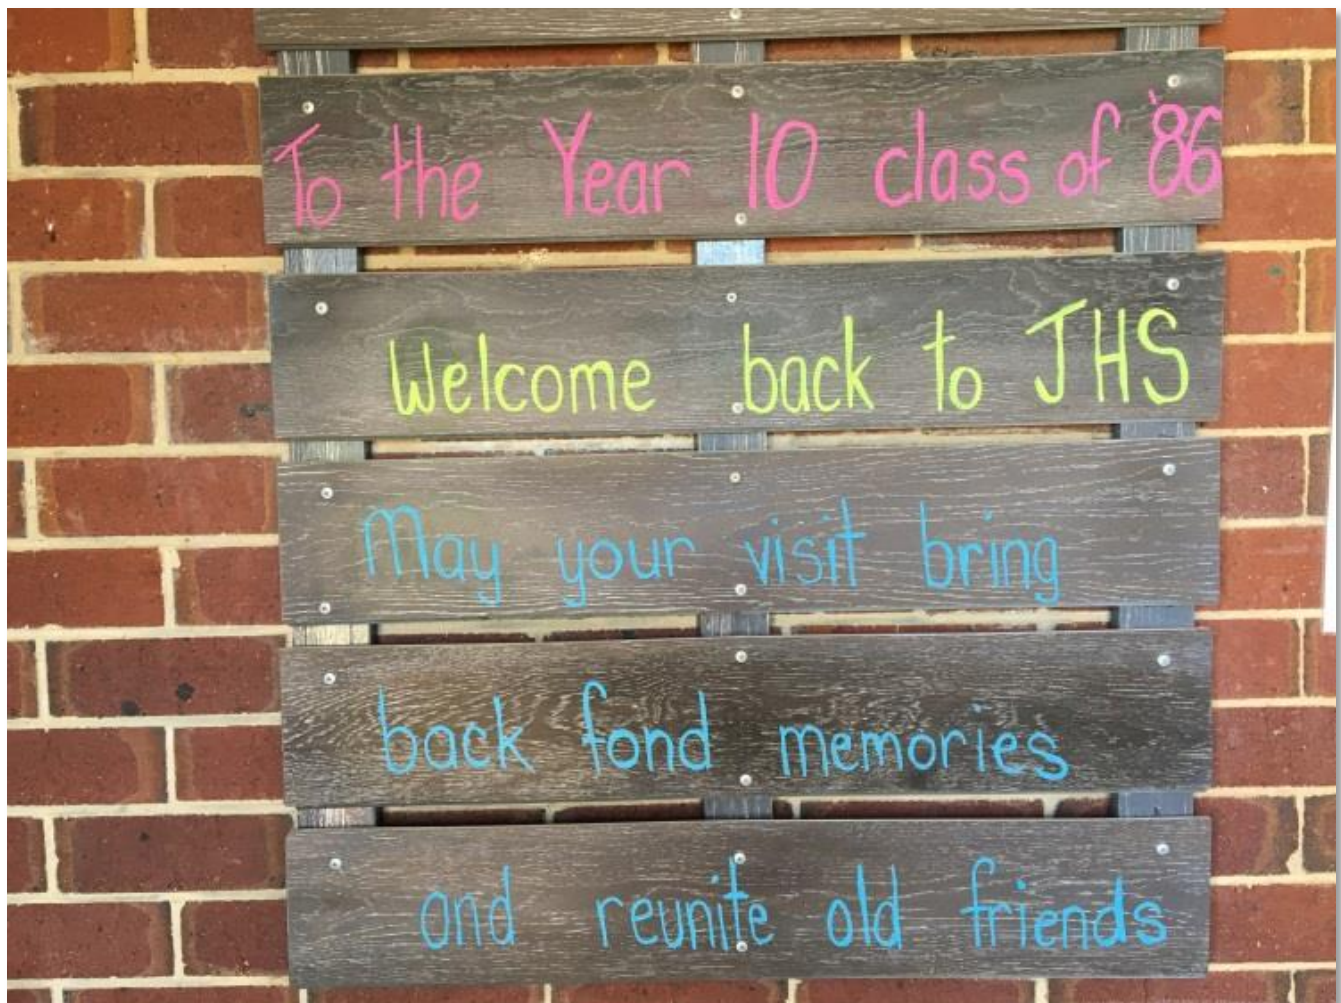 To the Year 10 class of '86
Welcome back to JHS
May your visit bring
back fond memories
and reunite old friends